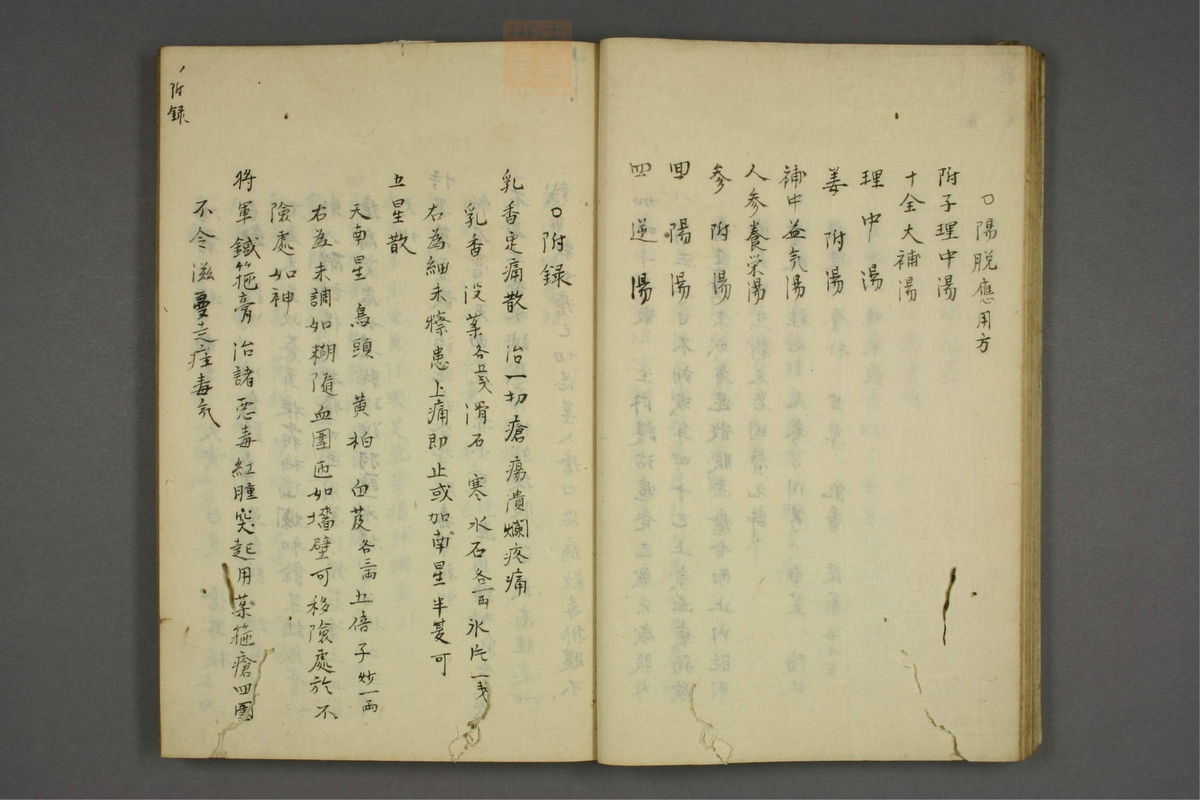 〇陽脱應用方
附子理中湯
十全大補湯
理中湯
姜附湯
補中益気湯
人参養栄湯
参附湯
回陽湯
四逆湯
〇附録
乳香定痛散 治一切瘡瘍潰爛疼痛
乳香 没薬各五戔 滑石 寒水石各一両 氷片一戔
右為細末擦患上痛即止或加南星半夏可
五星散
天南星 烏頭 黄柏 白芨各三両 五倍子炒一両
右為末調如糊随血圍匝如墻壁可移險處於不
險處如神
將軍鉄箍膏 治諸悪毒紅腫突起用薬箍瘡四圍
不令滋蔓走疰毒気
附録